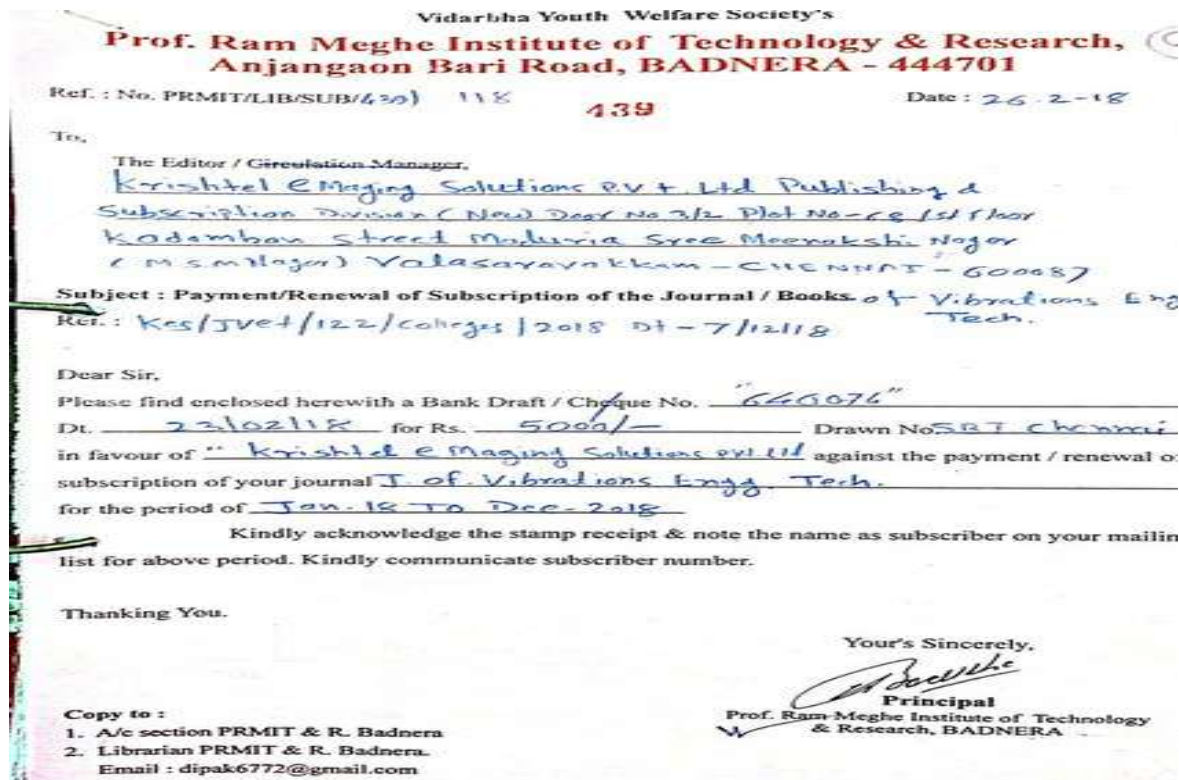 Vidarbha Youth Welfare Society's
Prof. Ram Meghe Institute of Technology & Research,
Anjangaon Bari Road, BADNERA - 444701
Ref. : No. PRMIT/LIB/SUB/439) 118
439
Date : 26.2-18
To,
The Editor / Circulation Manager,
Krishtel eMaging Solutions P.V t. Ltd Publishing &
Subscription Division (New) Door No 3/2 Plot No-68 1st floor
Kadamban Street Maduria Sree Meenakshi Nagar
(M.S.M Nagar) Valasaravakkam - CHENNAI - 600087
Subject : Payment/Renewal of Subscription of the Journal / Books of Vibrations Eng
Tech.
Ref. : Kes/JVet/122/Colleges/2018 Dt - 7/12/18
Dear Sir,
Please find enclosed herewith a Bank Draft / Cheque No. "646076"
Dt. 23/02/18 for Rs. 5000/- Drawn No SBI Chennai
in favour of " Krishtel eMaging Solutions Pvt Ltd against the payment / renewal o
subscription of your journal J. of. Vibrations Engg. Tech.
for the period of Jan. 18 To Dec - 2018
Kindly acknowledge the stamp receipt & note the name as subscriber on your mailin
list for above period. Kindly communicate subscriber number.
Thanking You.
Your's Sincerely,
Principal
Prof. Ram Meghe Institute of Technology
& Research, BADNERA
Copy to :
1. A/c section PRMIT & R. Badnera
2. Librarian PRMIT & R. Badnera.
Email : dipak6772@gmail.com